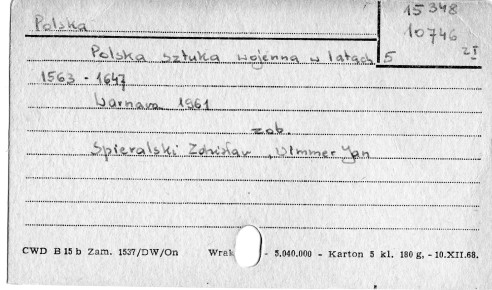 15 348
Polska
10746
Polska sztuka wojenna w latach 5 z I
1563 - 1647
Warszawa 1961
zob.
Spieralski Zdzisław, Wimmer Jan
CWD B 15 b Zam. 1537/DW/On Wrak - 5.040.000 - Karton 5 kl. 180 g, - 10.XII.68.